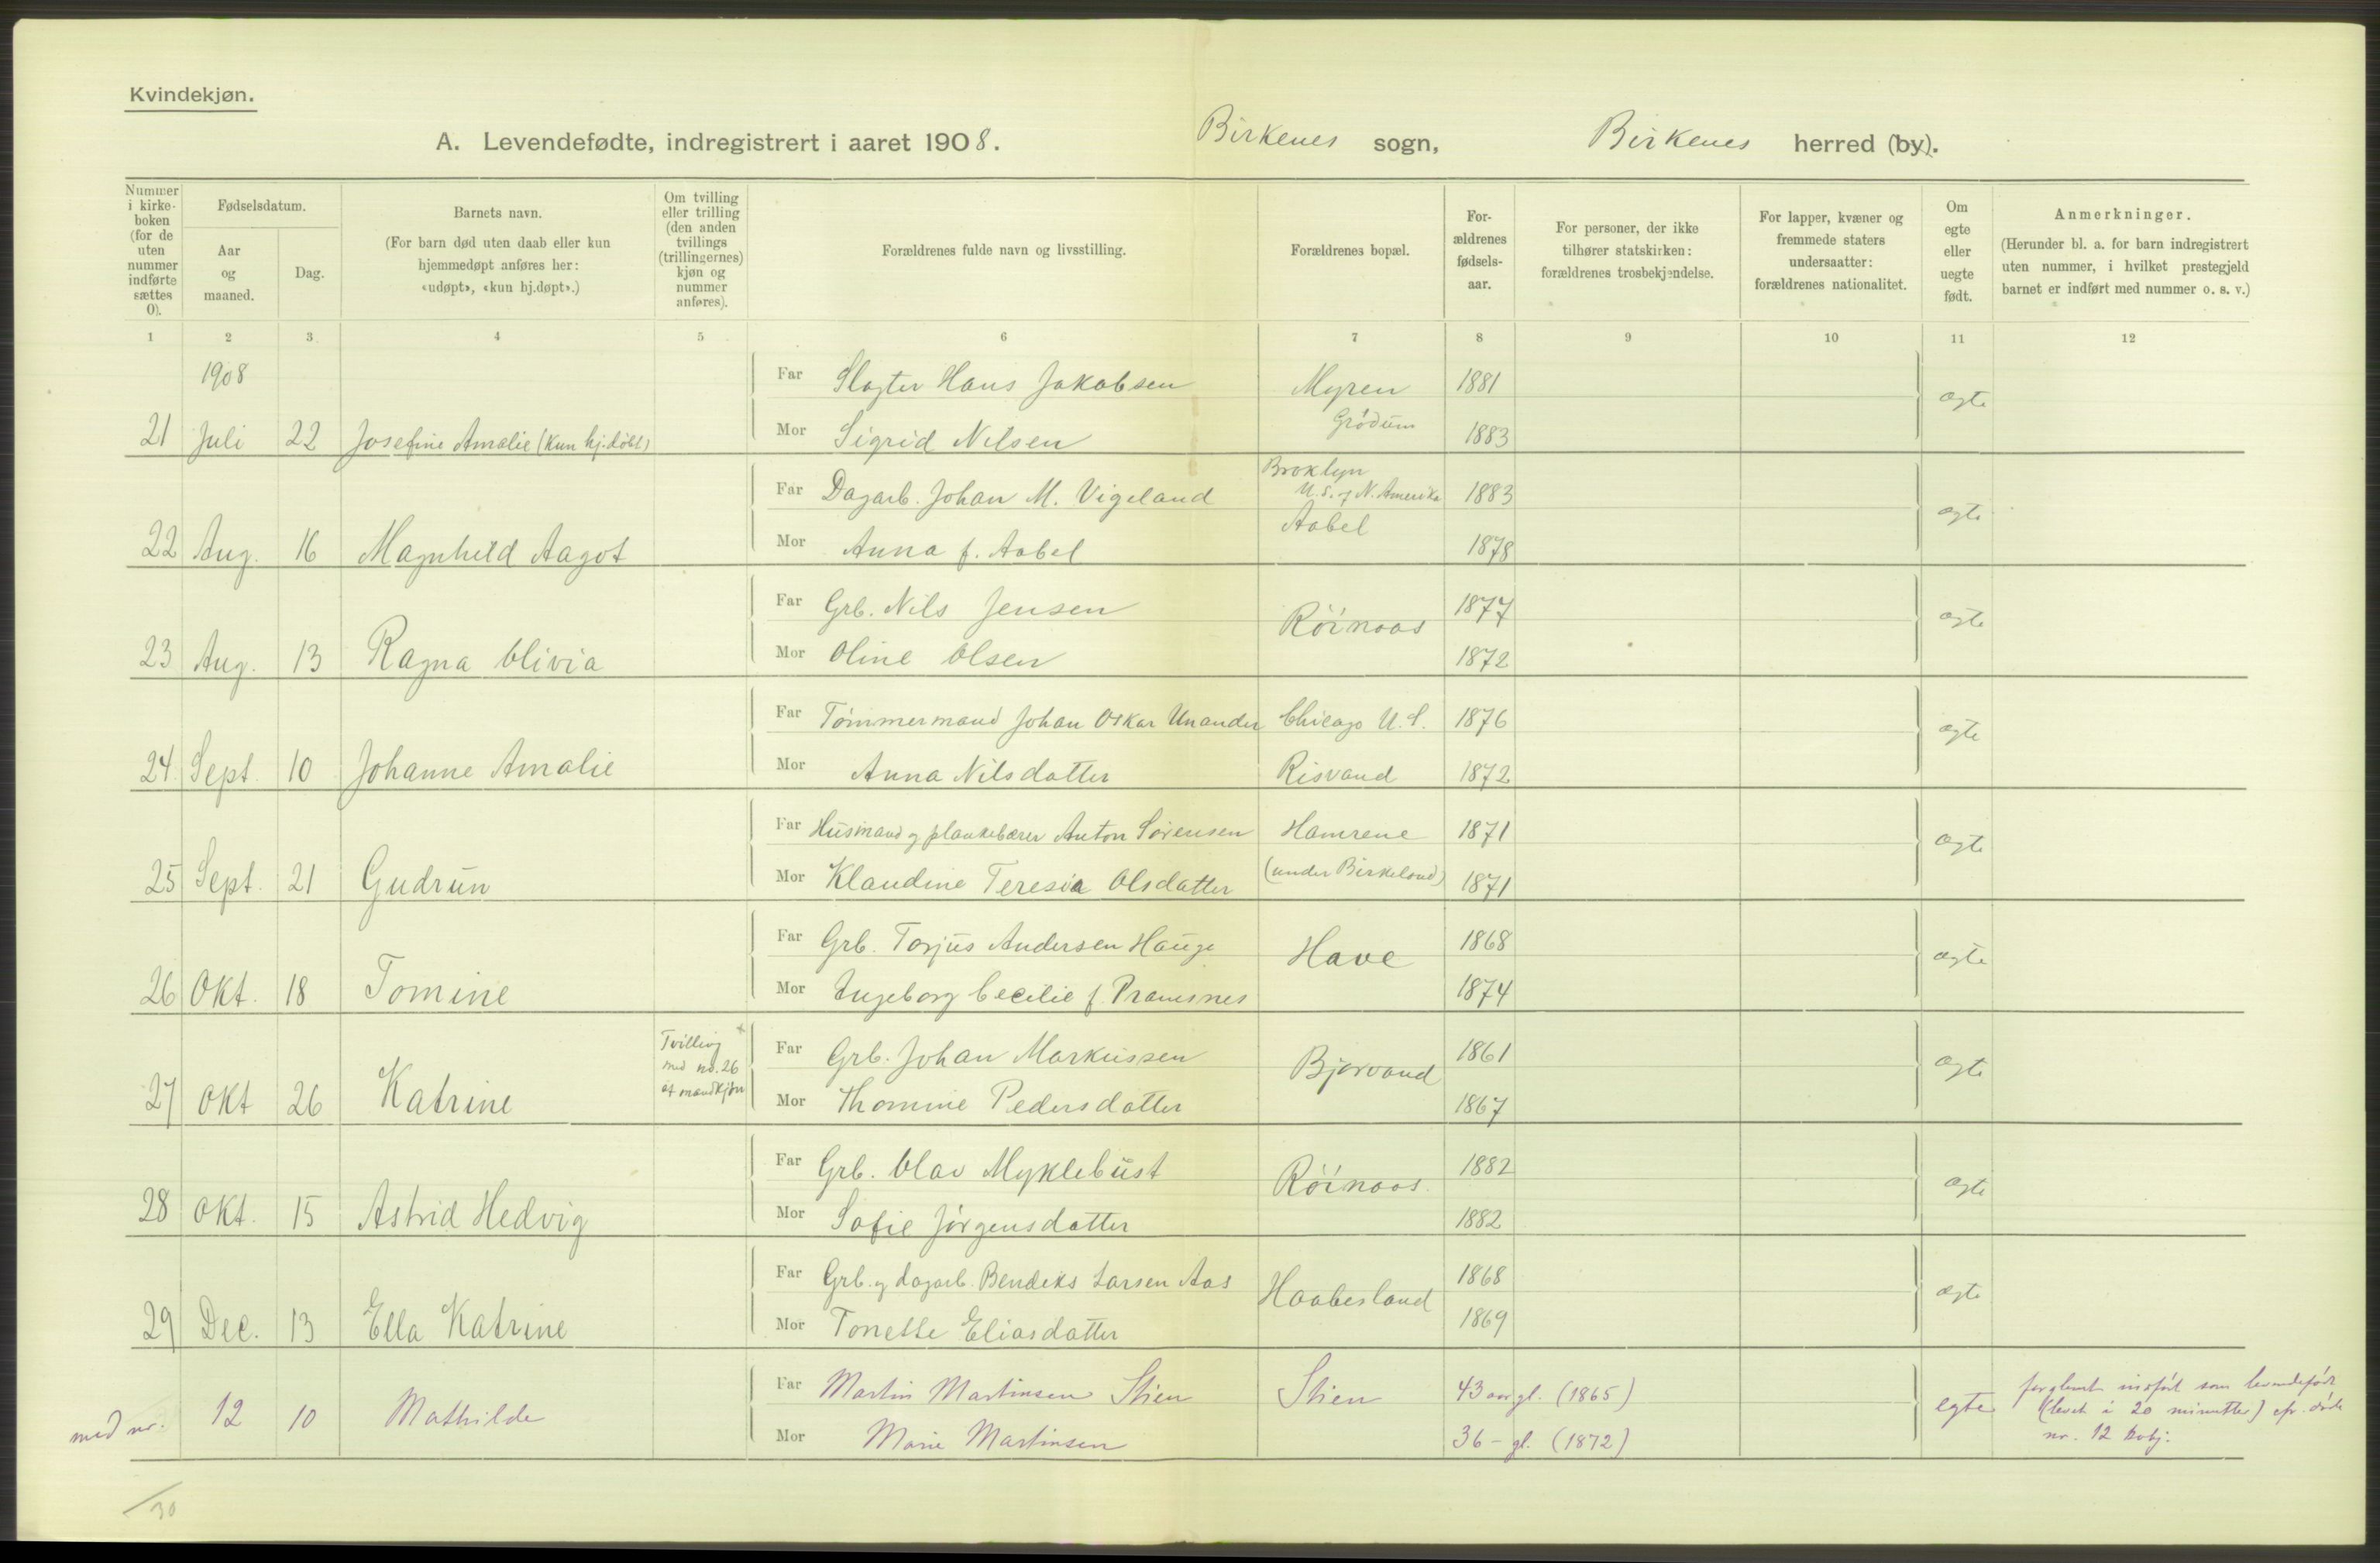 Kvindekjøn.
A. Levendefødte, indregistrert i aaret 1908. Birkenes sogn, Birkenes herred (by).
Nummer i kirkeboken (for de uten nummer indførte sættes 0).
Fødselsdatum.
Aar og maaned.
Dag.
Barnets navn.
(For barn død uten daab eller kun hjemmedøpt anføres her: «udøpt», «kun hj.døpt».)
Om tvilling eller trilling (den anden tvillings (trillingernes) kjøn og nummer anføres).
Forældrenes fulde navn og livsstilling.
Forældrenes bopæl.
Forældrenes fødselsaar.
For personer, der ikke tilhører statskirken: forældrenes trosbekjendelse.
For lapper, kvæner og fremmede staters undersaatter: forældrenes nationalitet.
Om egte eller uegte født.
Anmerkninger.
(Herunder bl. a. for barn indregistrert uten nummer, i hvilket prestegjeld barnet er indført med nummer o. s. v.)
1 2 3 4 5 6 7 8 9 10 11 12
1908 Far Slagter Hans Jakobsen Myren 1881 ægte
21 Juli 22 Josefine Amalie (kun hj.døbt) Mor Sigrid Nilsen Grödum 1883
Far Dagarb. Johan M. Vigeland Broklyn U.S. of N. Amerika 1883 ægte
22 Aug. 16 Magnhild Aagot Mor Anna f. Aabel Aabel 1878
Far Grb. Nils Jensen Röinaas 1877 ægte
23 Aug. 13 Ragna Olivia Mor Oline Olsen 1872
Far Tömmermand Johan Oskar Unander Chicago U.S. 1876 ægte
24 Sept. 10 Johanne Amalie Mor Anna Nilsdatter Risvand 1872
Far Husmand og plankebærer Anton Sörensen Hamrene 1871 ægte
25 Sept. 21 Gudrun Mor Klaudine Teresia Olsdatter (under Birkeland) 1871
Far Grb. Torjus Andersen Hauge Have 1868 ægte
26 Okt. 18 Tomine Mor Ingeborg Cecilie f. Pramsnes 1874
Tvilling + med no. 26 af mandkjön Far Grb. Johan Markussen Bjorvand 1861 ægte
27 Okt 26 Katrine Mor Thomine Pedersdatter 1867
Far Grb. Olav Myklebust Röinaas. 1882 ægte
28 Okt. 15 Astrid Hedvig Mor Sofie Jörgensdatter 1882
Far Grb. og dagarb. Bendiks Larsen Aas Haabesland 1868 ægte
29 Dec. 13 Ella Katrine Mor Tonette Eliasdatter 1869
Far Martin Martinsen Stien Stien 43 aar gl. (1865) egte
med nr. 12 10 Mathilde Mor Marie Martinsen 36 - gl. (1872)
forglemt indført som levendefødt
(levet i 20 minutter) cfr. døde
nr. 12 kvkj.
30